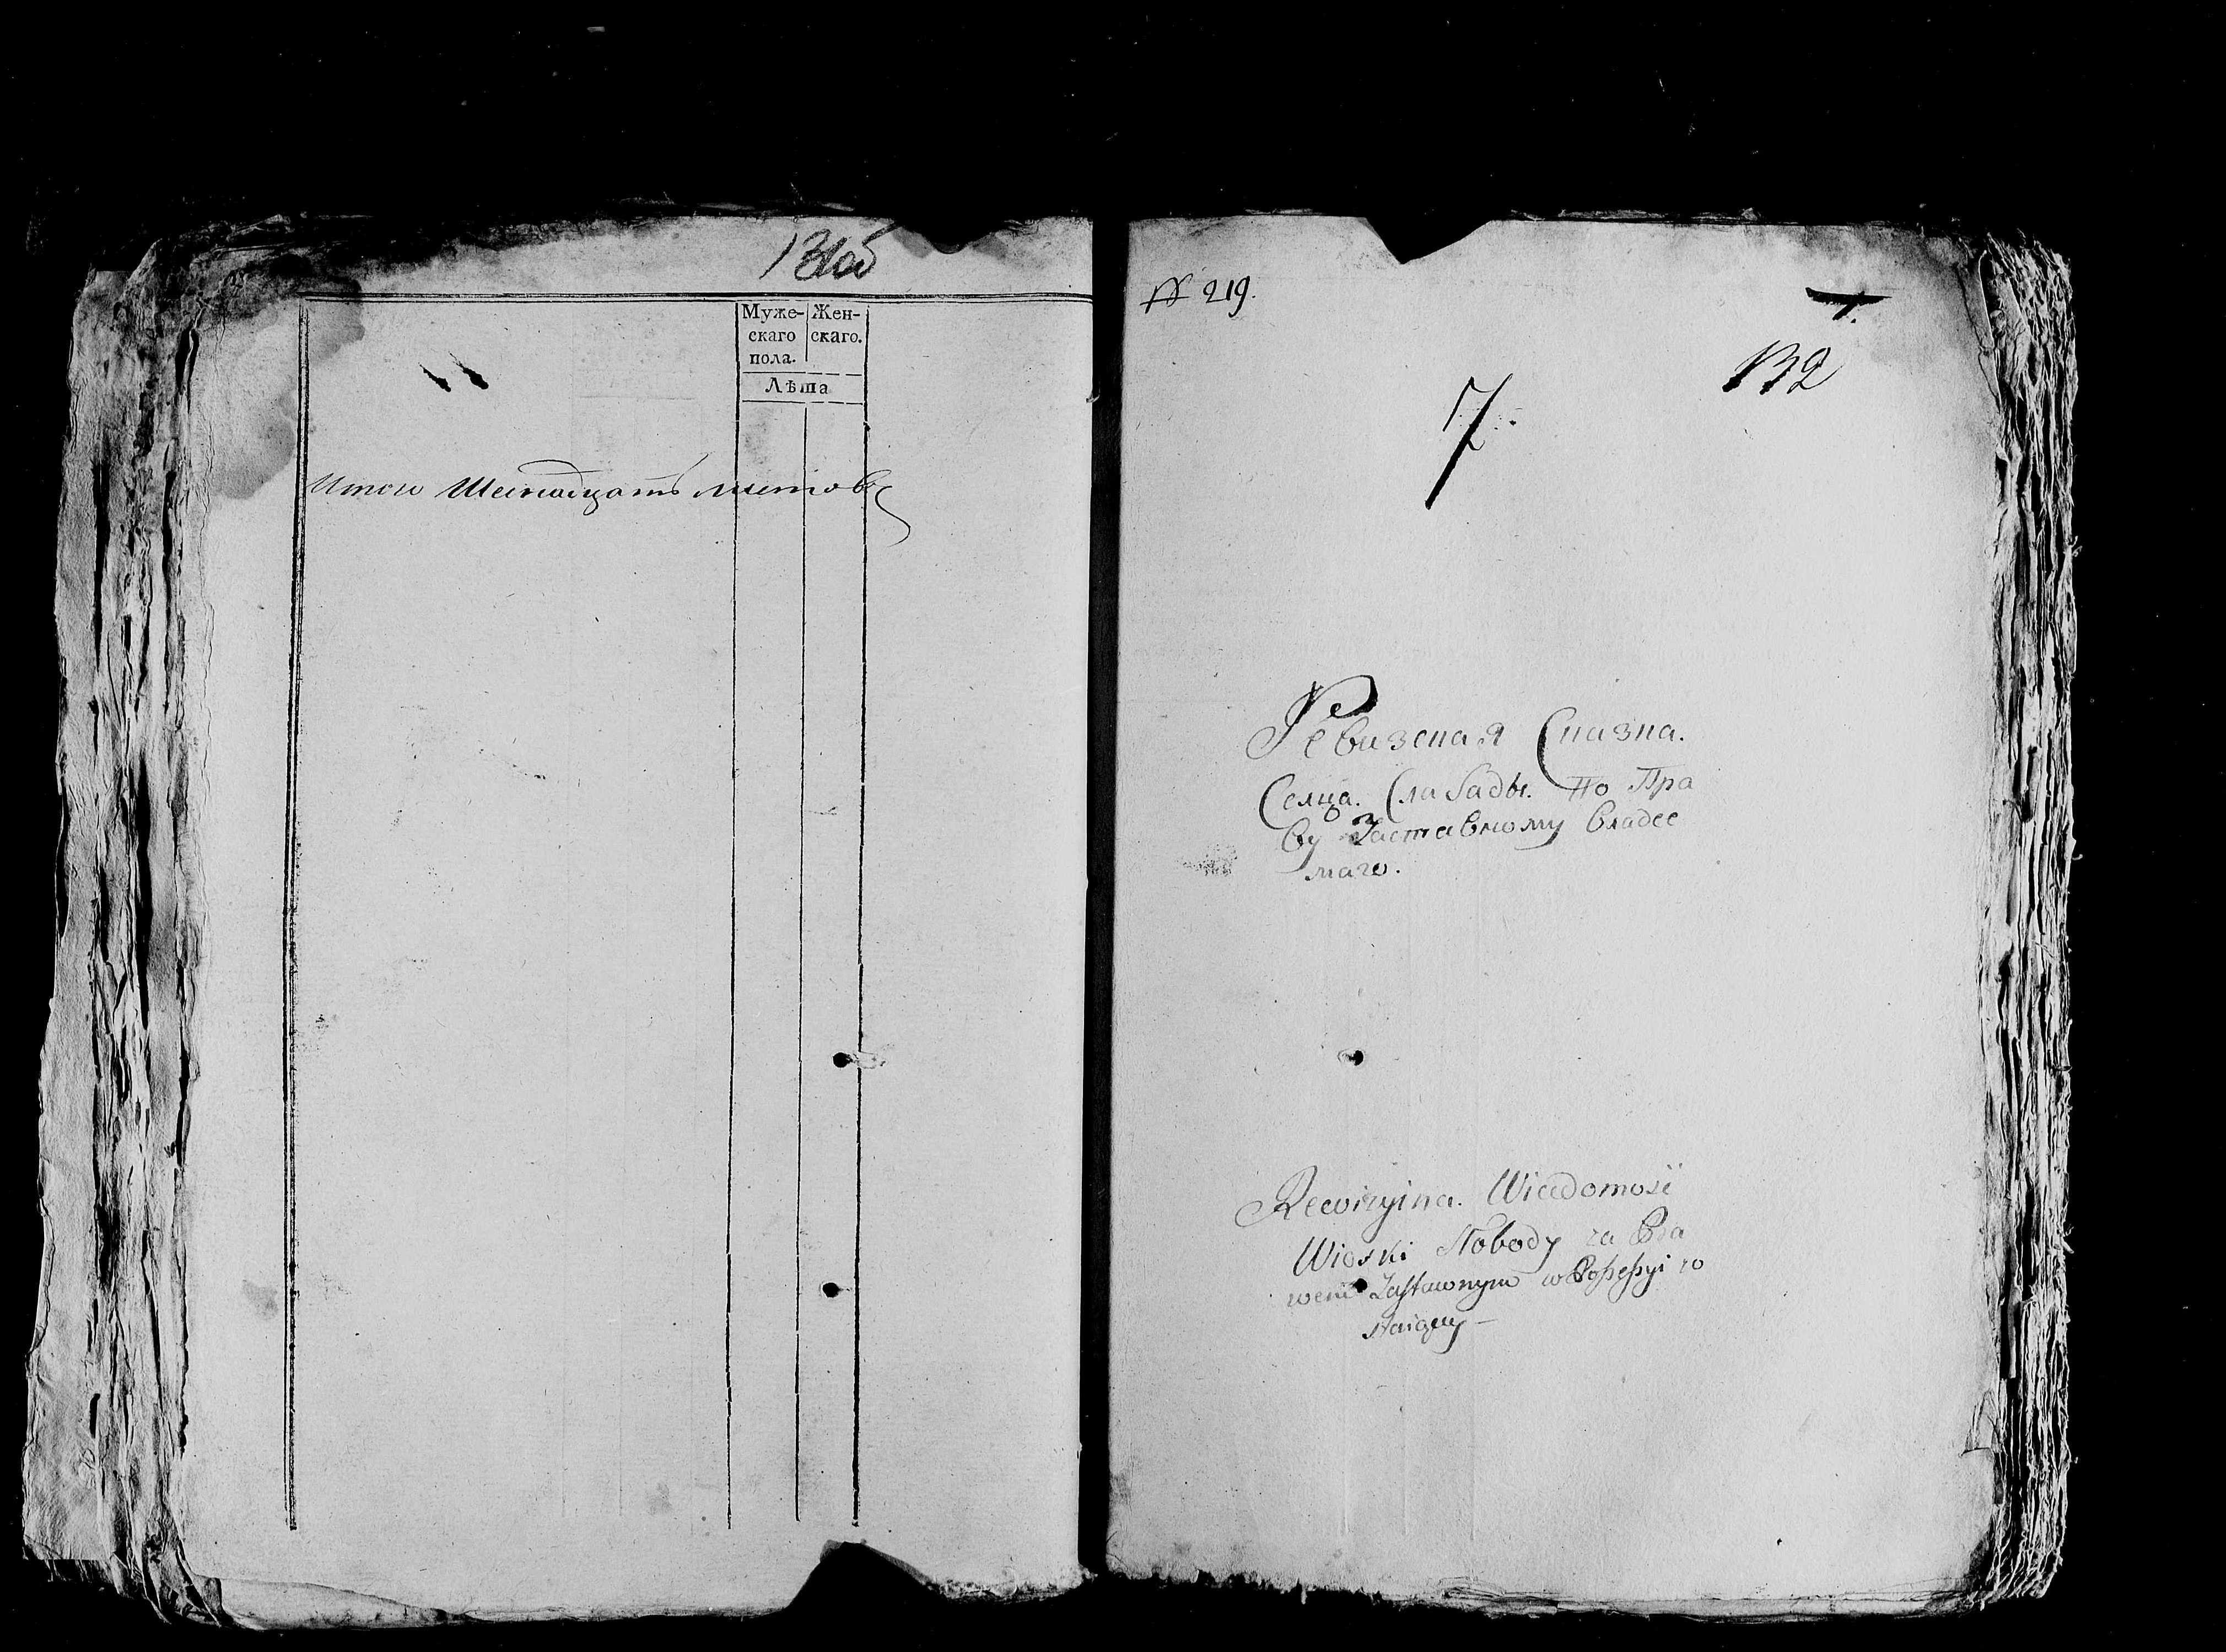 131об
Муже- Жен-
скаго скаго.
пола.
Лѣта
Итого Шеснадцать листовъ
№ 219.
132
7.
Ревизская Сказка.
Селца. Слабады. По Пра
ву Заставному владее
маго.
Rewizyina. Wiadomość
Wioski Słoboday za Pra
wem Zastawnym w Possessyi zo
staiącey